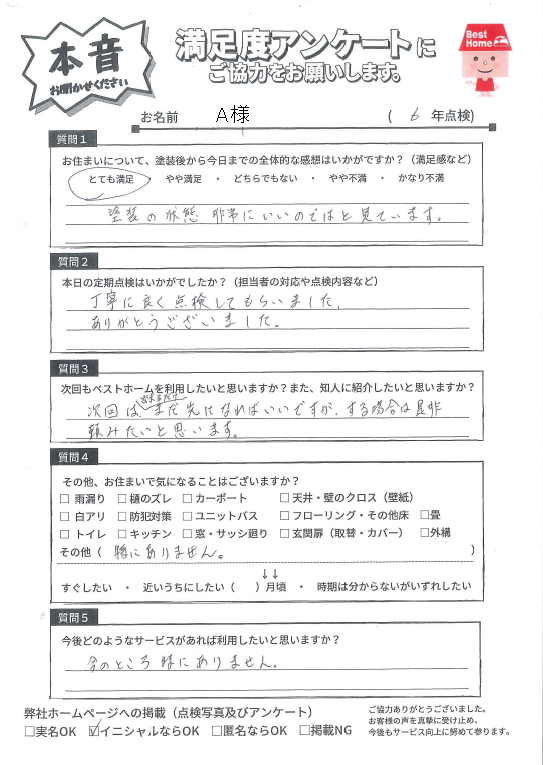 本音
お聞かせください
満足度アンケートに
ご協力をお願いします。
Best
Home
お名前 A様 ( 6 年点検)
質問1
お住まいについて、塗装後から今日までの全体的な感想はいかがですか？（満足感など）
とても満足 ・ やや満足 ・ どちらでもない ・ やや不満 ・ かなり不満
塗装の状態 非常にいいのではと見ています。
質問2
本日の定期点検はいかがでしたか？（担当者の対応や点検内容など）
丁寧に良く点検してもらいました、
ありがとうございました。
質問3
次回もベストホームを利用したいと思いますか？また、知人に紹介したいと思いますか？
次回はまだ先になればいいですが、する場合は是非
頼みたいと思います。
質問4
その他、お住まいで気になることはございますか？
□ 雨漏り □ 樋のズレ □ カーポート □ 天井・壁のクロス（壁紙）
□ 白アリ □ 防犯対策 □ ユニットバス □ フローリング・その他床 □畳
□ トイレ □ キッチン □ 窓・サッシ廻り □ 玄関扉（取替・カバー） □外構
その他（ 特にありません。 ）
↓↓
すぐしたい ・ 近いうちにしたい（ ）月頃 ・ 時期は分からないがいずれしたい
質問5
今後どのようなサービスがあれば利用したいと思いますか？
今のところ 特にありません。
弊社ホームページへの掲載（点検写真及びアンケート）
□実名OK ☑イニシャルならOK □匿名ならOK □掲載NG
ご協力ありがとうございました。
お客様の声を真摯に受け止め、
今後もサービス向上に努めて参ります。